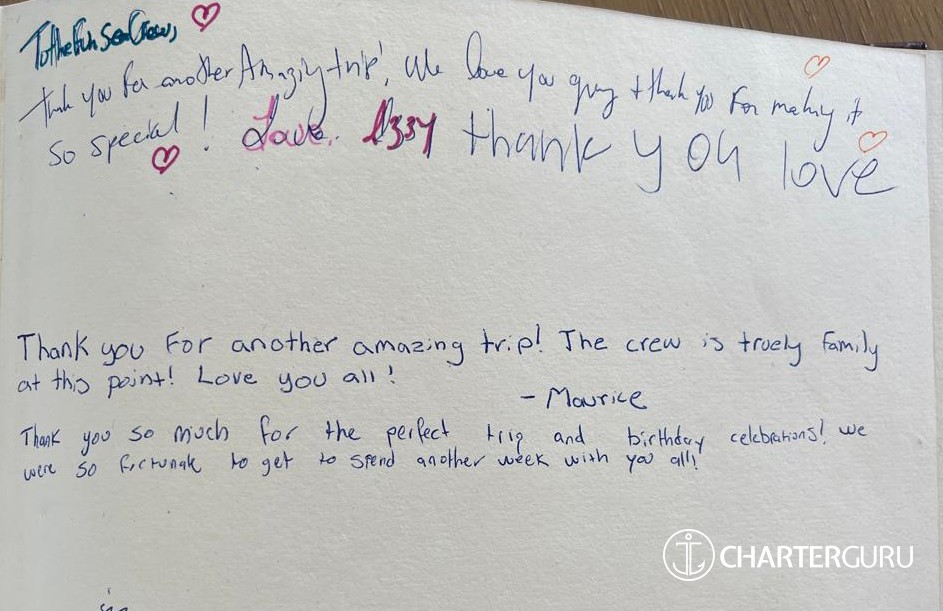 To the Fun Sea Crew,
Thank you for another Amazing trip! We love you guys + thank you For making it
so special! Love. Izzy thank you love
Thank you For another amazing trip! The crew is truely family
at this point! Love you all!
- Maurice
Thank you so much for the perfect trip and birthday celebrations! we
were so fortunate to get to spend another week with you all!
CHARTERGURU